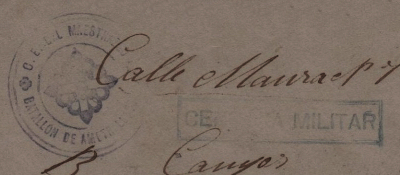 C. E. E. L. MAESTR
BATALLÓN DE AMETR
Calle Maura Nº 7
CENSURA MILITAR
B Campos